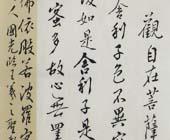 觀自在菩薩
舍利子色不異
復如是舍利子是
蜜多故心無罣
佛依般若波羅